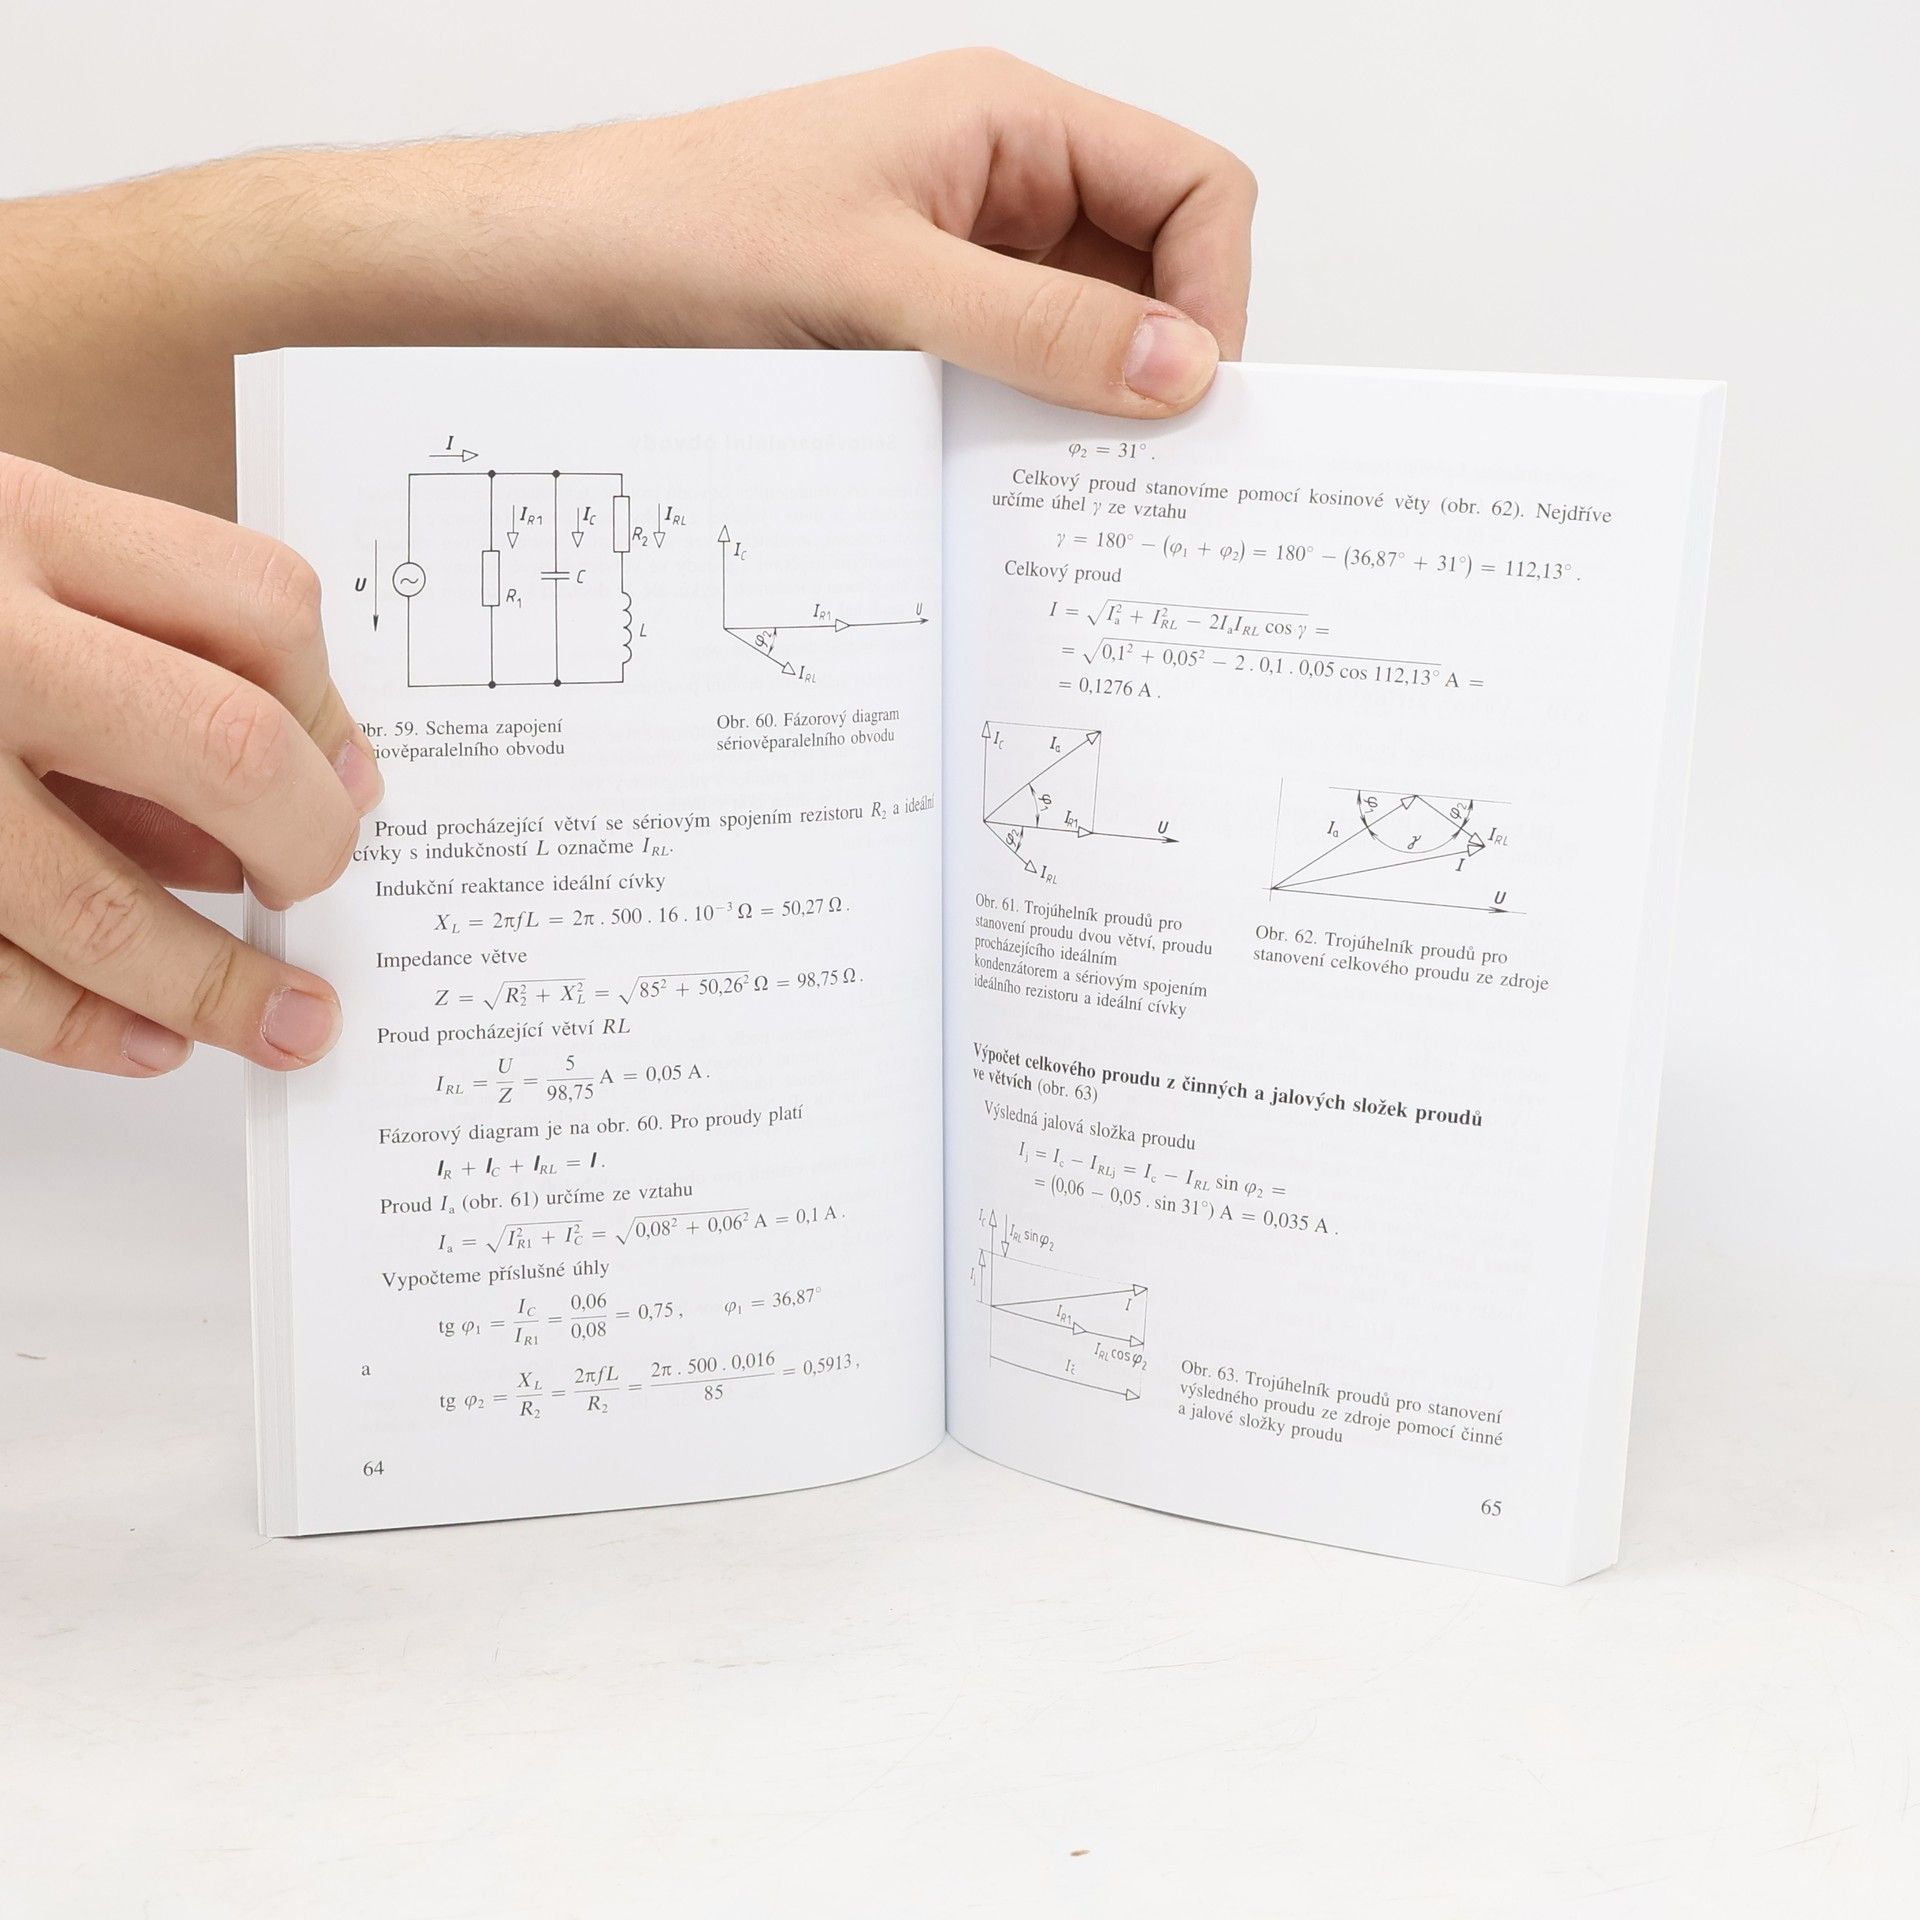 I
I_R1
I_C
R_2
I_RL
U
R_1
C
L
I_C
I_R1
U
φ_2
I_RL
br. 59. Schema zapojení
iověparalelního obvodu
Obr. 60. Fázorový diagram
sériověparalelního obvodu
Proud procházející větví se sériovým spojením rezistoru R_2 a ideální
cívky s indukčností L označme I_RL.
Indukční reaktance ideální cívky
X_L = 2πfL = 2π . 500 . 16 . 10⁻³ Ω = 50,27 Ω .
Impedance větve
Z = √(R_2² + X_L²) = √(85² + 50,26²) Ω = 98,75 Ω .
Proud procházející větví RL
I_RL = U/Z = 5/98,75 A = 0,05 A .
Fázorový diagram je na obr. 60. Pro proudy platí
I_R + I_C + I_RL = I .
Proud I_a (obr. 61) určíme ze vztahu
I_a = √(I_R1² + I_C²) = √(0,08² + 0,06²) A = 0,1 A .
Vypočteme příslušné úhly
tg φ_1 = I_C/I_R1 = 0,06/0,08 = 0,75 , φ_1 = 36,87°
a
tg φ_2 = X_L/R_2 = 2πfL/R_2 = 2π . 500 . 0,016/85 = 0,5913 ,
64
φ_2 = 31° .
Celkový proud stanovíme pomocí kosinové věty (obr. 62). Nejdříve
určíme úhel γ ze vztahu
γ = 180° − (φ_1 + φ_2) = 180° − (36,87° + 31°) = 112,13° .
Celkový proud
I = √(I_a² + I_RL² − 2I_aI_RL cos γ) =
= √(0,1² + 0,05² − 2 . 0,1 . 0,05 cos 112,13°) A =
= 0,1276 A .
I_C
I_a
φ_1
I_R1
U
φ_2
I_RL
φ_1
φ_2
I_a
γ
I_RL
I
U
Obr. 61. Trojúhelník proudů pro
stanovení proudu dvou větví, proudu
procházejícího ideálním
kondenzátorem a sériovým spojením
ideálního rezistoru a ideální cívky
Obr. 62. Trojúhelník proudů pro
stanovení celkového proudu ze zdroje
Výpočet celkového proudu z činných a jalových složek proudů
ve větvích (obr. 63)
Výsledná jalová složka proudu
I_j = I_c − I_RLj = I_c − I_RL sin φ_2 =
= (0,06 − 0,05 . sin 31°) A = 0,035 A .
I_C
I_RL sin φ_2
I_j
I
I_R1
I_RL cos φ_2
I_č
Obr. 63. Trojúhelník proudů pro stanovení
výsledného proudu ze zdroje pomocí činné
a jalové složky proudu
65